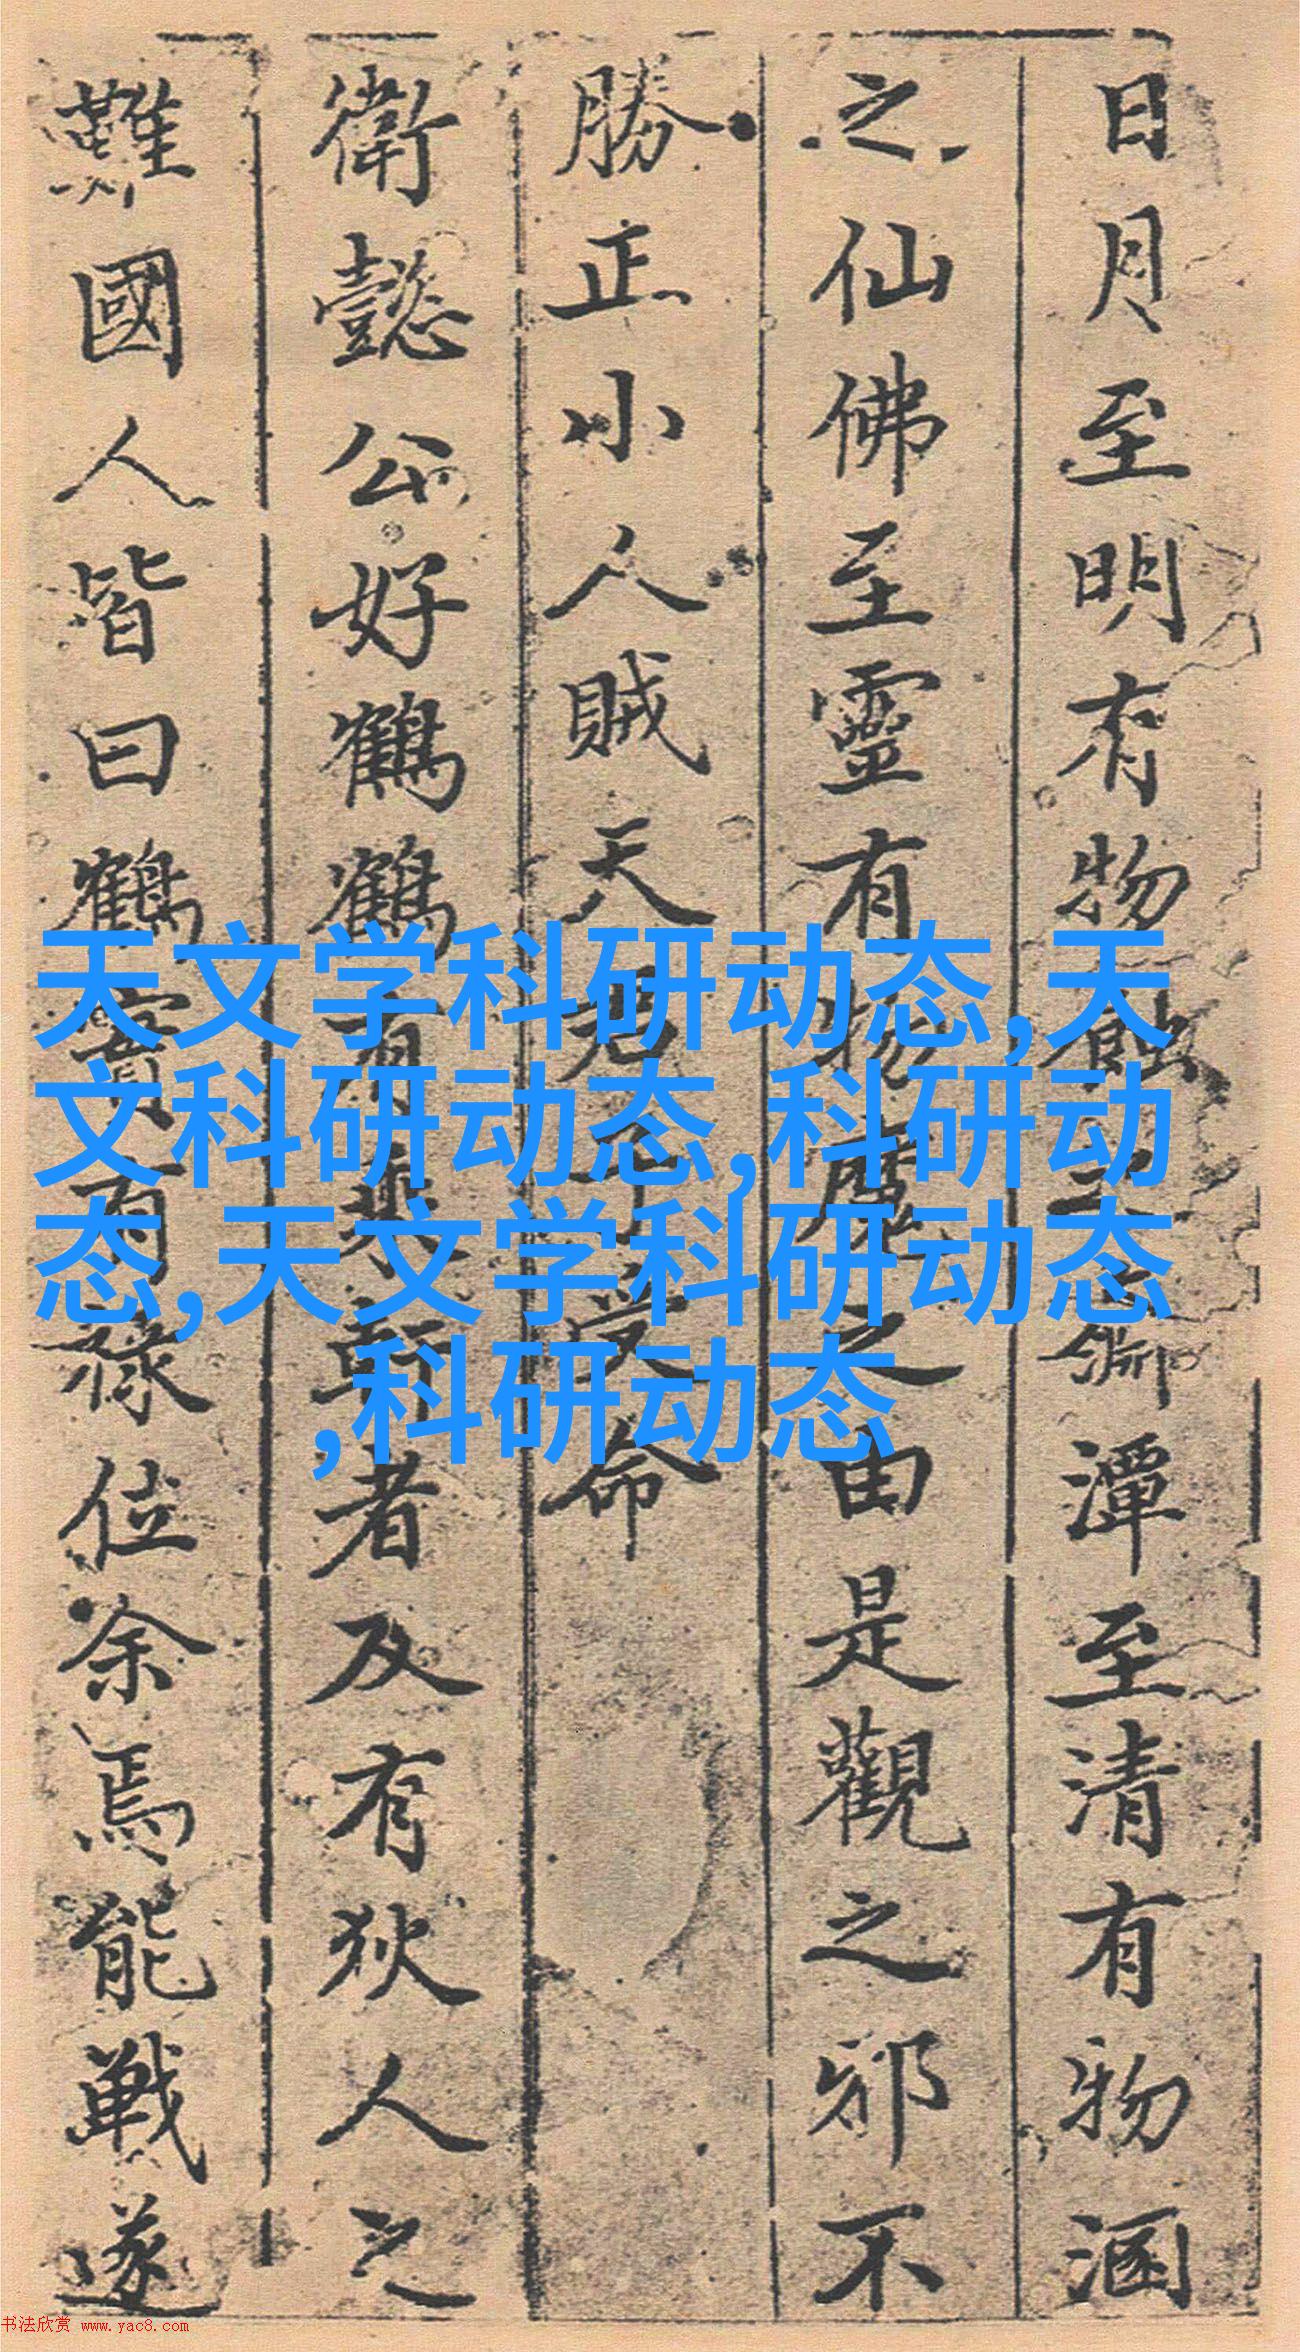 日月至明有物蝕之。潭至清有物溷
之仙佛至靈有物魔之由是觀之邪不
勝正小人賊天君子受命
衛懿公好鶴鶴有乘軒者及有狄人之
難國人皆曰鶴實有祿位余焉能戰遂
天文学科研动态,天
文科研动态,科研动
态,天文学科研动态
,科研动态
书法欣赏 www.yac8.com